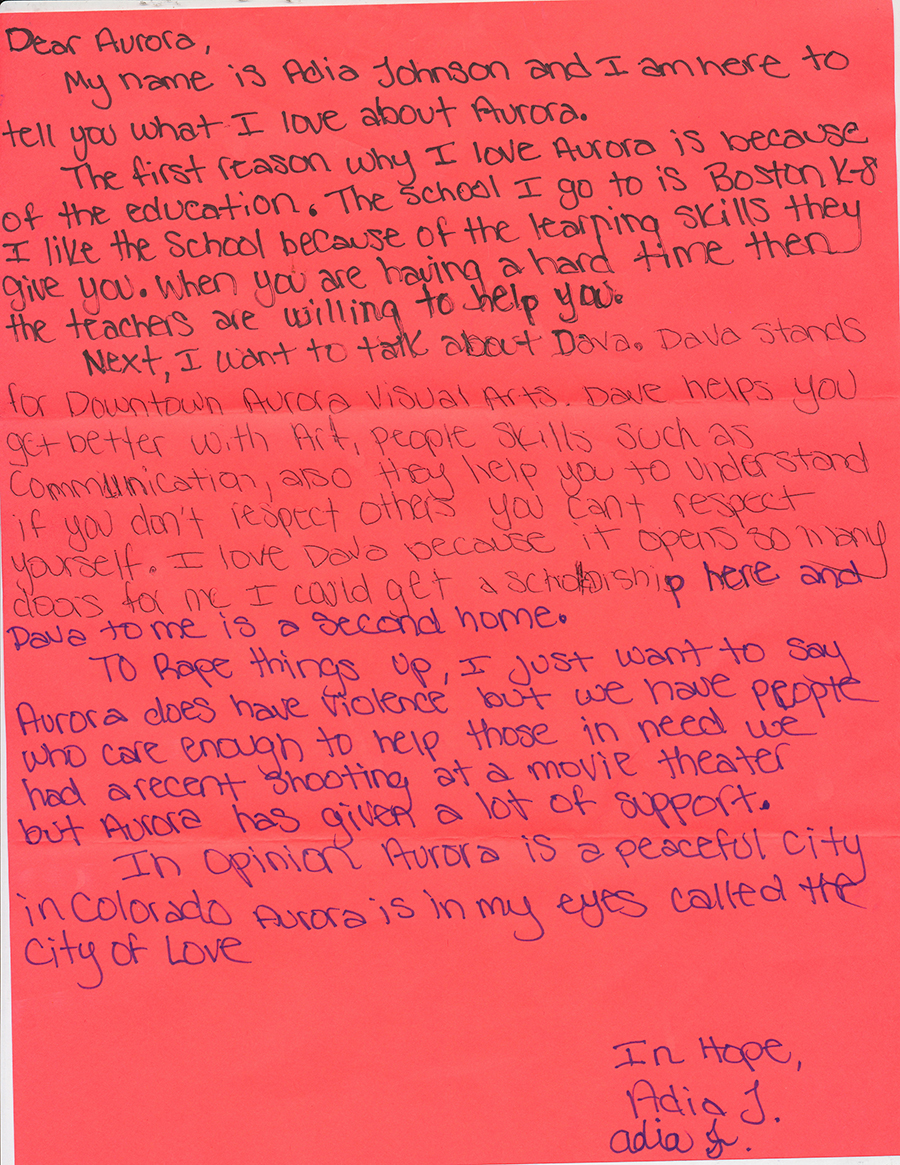 Dear Aurora,
My name is Adia Johnson and I am here to
tell you what I love about Aurora.
The first reason why I love Aurora is because
of the education. The school I go to is Boston K-8
I like the School because of the learning skills they
give you. When you are having a hard time then
the teachers are willing to help you.
Next, I want to talk about Dava. Dava stands
for Downtown Aurora Visual Arts. Dave helps you
get better with Art, people skills such as
Communication, also they help you to understand
if you don't respect others you can't respect
yourself. I love Dava because it opens so many
doors for me I could get a scholarship here and
Dava to me is a second home.
To Rape things up, I just want to say
Aurora does have violence but we have people
who care enough to help those in need we
had a recent shooting at a movie theater
but Aurora has given a lot of support.
In Opinion Aurora is a peaceful city
in Colorado Aurora is in my eyes called the
City of Love
In Hope,
Adia J.
adia J.